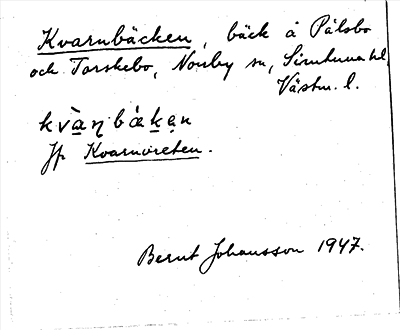 Kvarnbäcken, bäck å Pålsbo
och Torskebo, Norrby sn, Simtuna hd,
Västm. l.
kvàṇbä́kən
Jfr Kvarnvreten.
Bernt Johansson 1947.